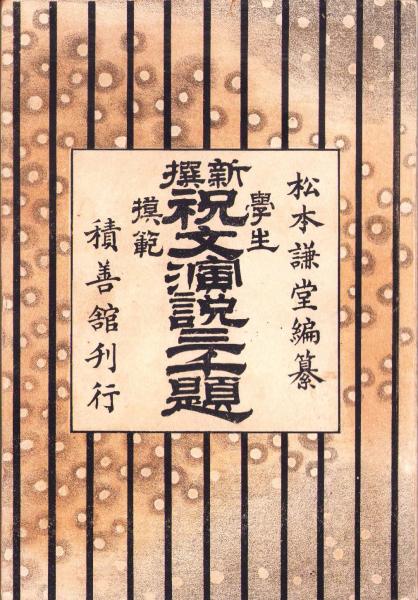 松本謙堂編纂
新撰
學生
摸範
祝文演説三千題
積善舘刊行